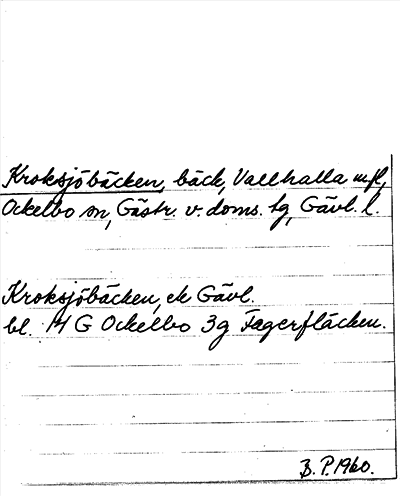 Kroksjöbäcken, bäck, Vallhalla m.fl,
Ockelbo sn, Gästr. v. doms. tg, Gävl. l.
Kroksjöbäcken, ek Gävl.
bl. 14 G Ockelbo 3g Fagerfläcken.
B. P. 1960.